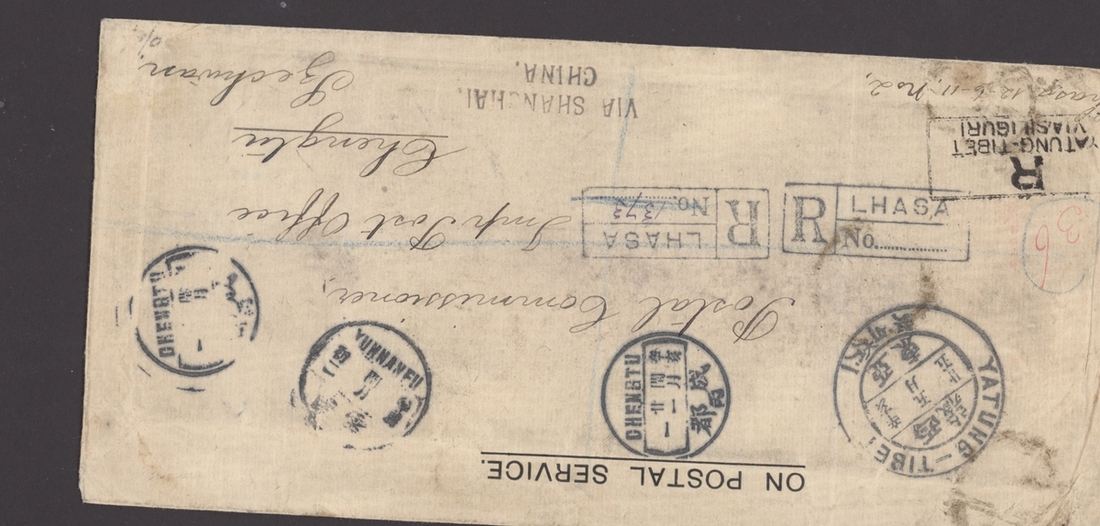 ON POSTAL SERVICE.
YATUNG-TIBET
CHENGTU
成都
YUNNANFU
CHENGTU
Postal Commissioner,
Imp. Post Office
Chengtu
Szechwan.
LHASA
R
No. 373
R
LHASA
No.
VIA SHANGHAI,
CHINA.
R
YATUNG-TIBET
VIA SILIGURI
36